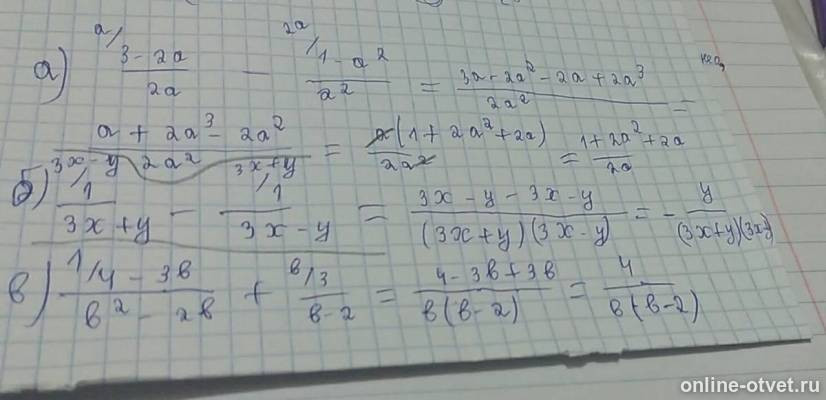 а) a/ (3 - 2a)/(2a) - 2a/ (1 - a²)/(a²) = (3a - 2a² - 2a + 2a³)/(2a²) =
(a + 2a³ - 2a²)/(2a²) = (a(1 + 2a² + 2a))/(2a²) = (1 + 2a² + 2a)/(2a)
б) 3x-y/ 1/(3x + y) - 3x+y/ 1/(3x - y) = (3x - y - 3x - y)/((3x + y)(3x - y)) = - y/((3x+y)(3x-y))
в) 1/ (4 - 3в)/(в² - 2в) + в/ 3/(в - 2) = (4 - 3в + 3в)/(в(в - 2)) = 4/(в(в - 2))
online-otvet.ru